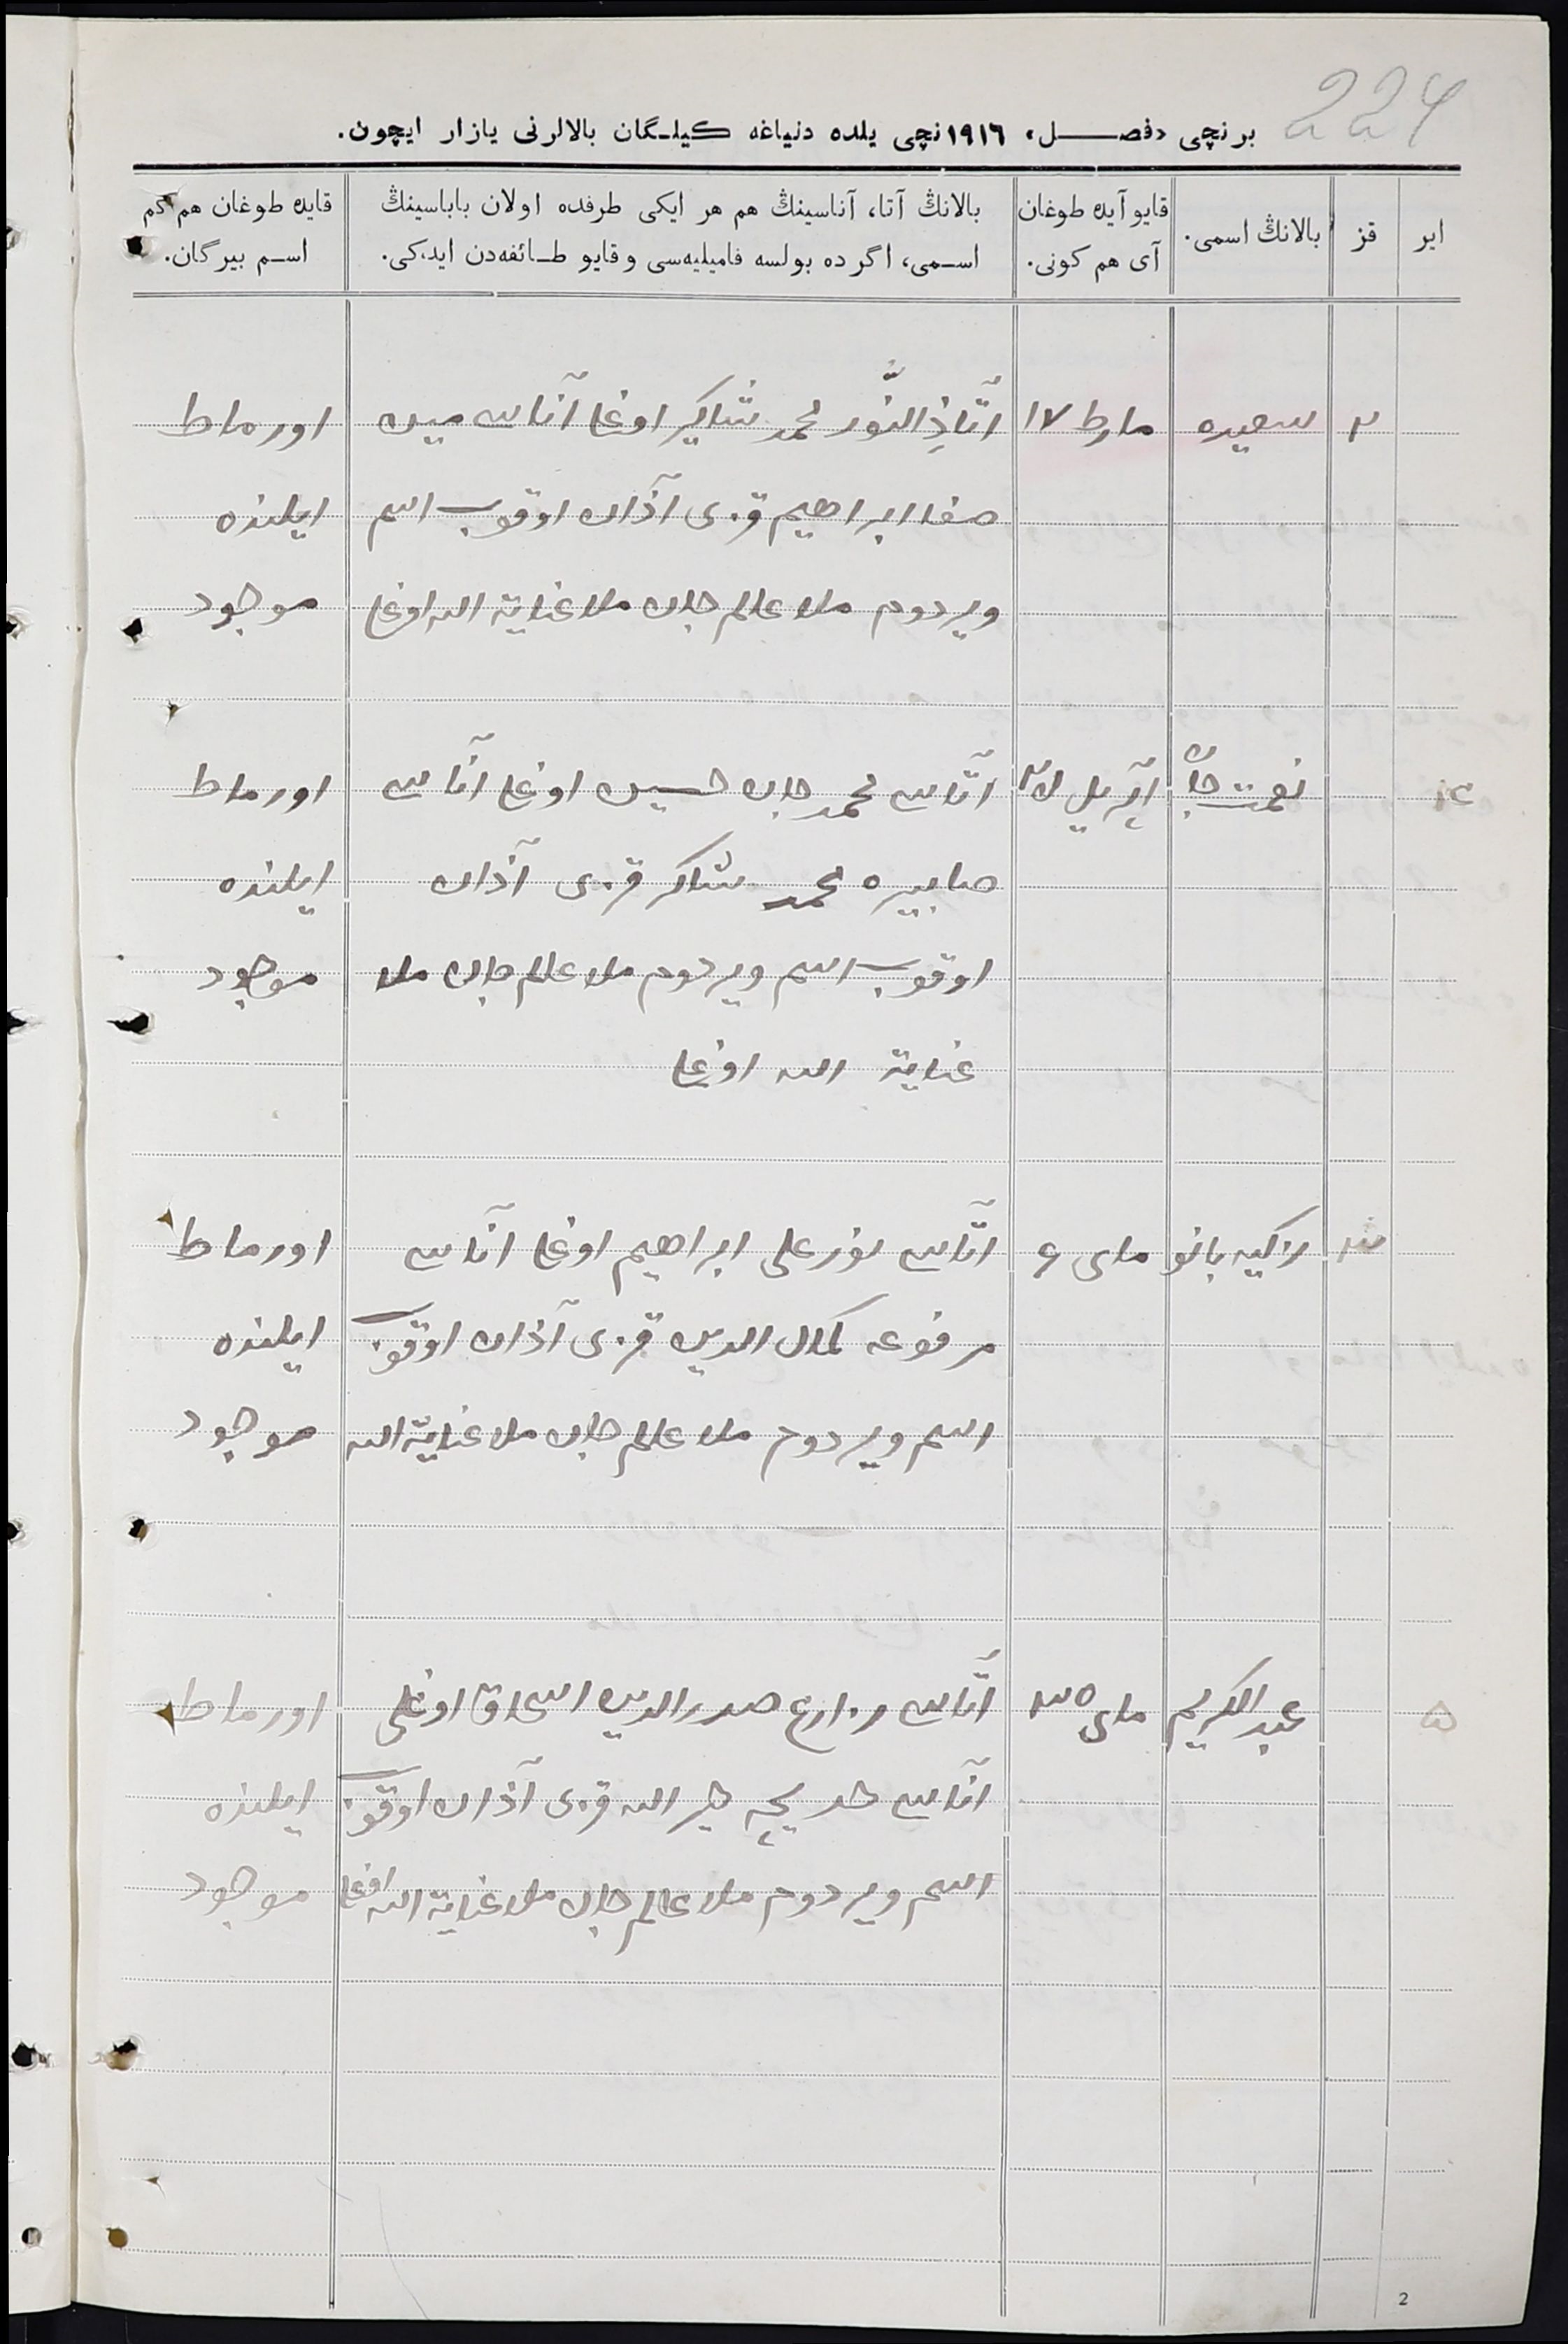 224
برنچی «فصل» ١٩١٦نچی یلده دنیاغه کیلگان بالالرنی یازار ایچون.
ایر
قز
بالانڭ اسمی.
قایو آیده طوغان
آی هم کونی.
بالانڭ آتا، آناسینڭ هم هر ایکی طرفده اولان باباسینڭ
اسمی، اگر ده بولسه فامیلیه‌سی و قایو طائفه‌دن ایدکی.
قایده طوغان هم کم
اسم بیرگان.
٢ سعیده مارط ١٧ آتا ذالنّور محمد شاکیر اوغلی آناسی
اورماط
صفا ابراهیم قزی آذان اوقوب اسم
ایلنده
ویردوم ملا عالم جان ملا عنایة الله اوغلی
موجود
نعمت جان آپریل آتاسی محمد جان حسین اوغلی آناسی
اورماط
صابیره محمد شاکر قزی آذان
ایلنده
اوقوب اسم ویردوم ملا عالم جان ملا
موجود
عنایة الله اوغلی
زکیه بانو مای ۶ آتاسی نور علی ابراهیم اوغلی آناسی
اورماط
مرفوعه کمال الدین قزی آذان اوقوب
ایلنده
اسم ویردوم ملا عالم جان ملا عنایة الله
موجود
۵ عبد الکریم مای آتاسی صدر الدین اسحاق اوغلی
اورماط
آناسی خدیچه خیر الله قزی آذان اوقوب
ایلنده
اسم ویردوم ملا عالم جان ملا عنایة الله اوغلی
موجود
2